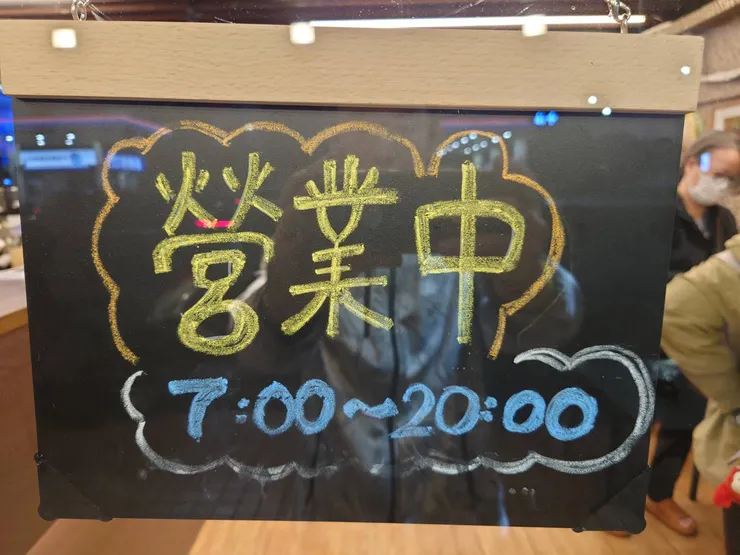 營業中
7:00~20:00